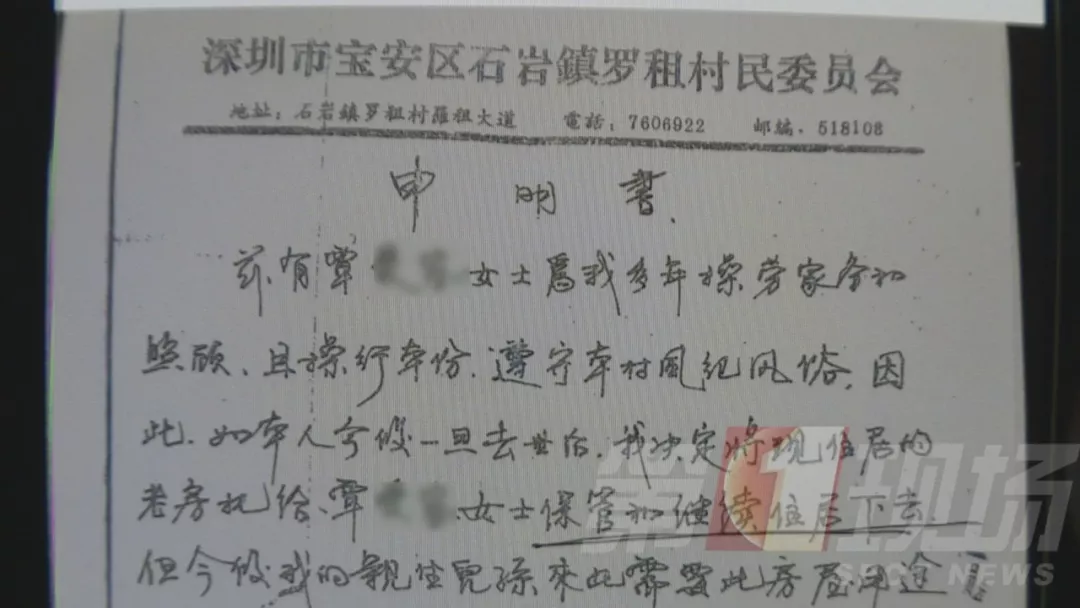 深圳市宝安区石岩鎮罗租村民委员会
地址：石岩鎮罗租村羅租大道 電話：7606922 邮编．518108
申 明 書
兹有覃 女士爲我多年操劳家务和
照顾、且操行本份．遵守本村風纪风俗．因
此．如本人今後一旦去世后．我决定将现住居的
老房托给、覃 女士保管和继续住居下去．
但今後我的親生兒孫來此需要此房屋用途
第1现场
NEWS